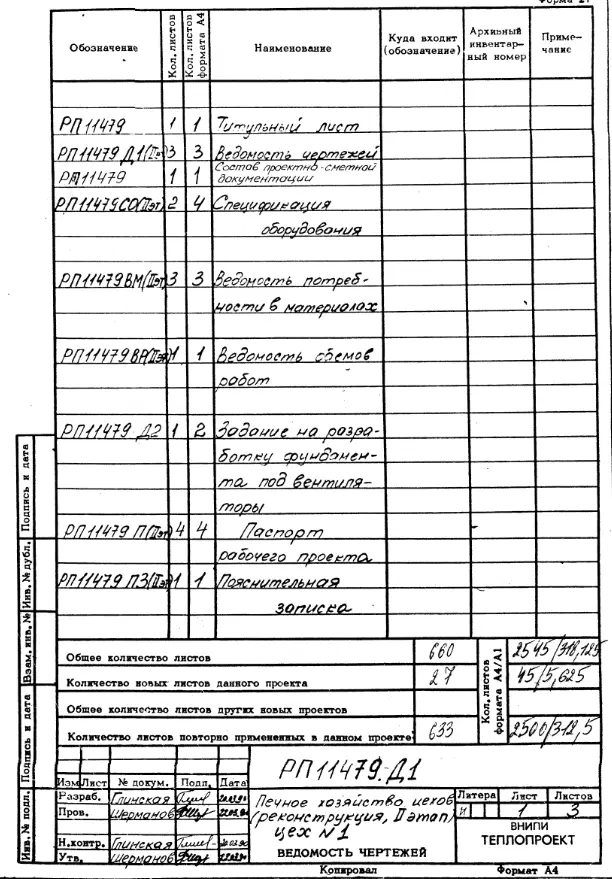 Форма 2г
Обозначение Кол. листов Кол. листов формата А4 Наименование Куда входит (обозначение) Архивный инвентарный номер Примечание
РП11479 1 1 Титульный лист
РП11479 Д1(IIэт) 3 3 Ведомость чертежей
РП11479 1 1 Состав проектно-сметной
документации
РП11479СО(IIэт) 2 4 Спецификация
оборудования
РП11479ВМ(IIэт) 3 3 Ведомость потреб-
ности в материалах
РП11479ВР(IIэт) 1 1 Ведомость объемов
работ
РП11479 Д2 1 2 Задание на разра-
ботку фундамен-
та под вентиля-
торы
РП11479 П(IIэт) 4 4 Паспорт
рабочего проекта
РП11479 ПЗ(IIэт) 1 1 Пояснительная
записка
Общее количество листов 660 2545/318,125
Количество новых листов данного проекта 27 45/5,625
Общее количество листов других новых проектов
Количество листов повторно примененных в данном проекте 633 2500/312,5
Кол. листов формата А4/А1
РП11479.Д1
Изм Лист № докум. Подп. Дата
Разраб. Глинская
Пров. Шерманов
Н.контр. Глинская
Утв. Шерманов
Печное хозяйство цехов
(реконструкция, II этап)
цех N1
ВЕДОМОСТЬ ЧЕРТЕЖЕЙ
Литера Лист Листов
И 1 3
ВНИПИ
ТЕПЛОПРОЕКТ
Копировал Формат А4
Подпись и дата
Инв. № дубл.
Взам. инв. №
Подпись и дата
Инв. № подл.